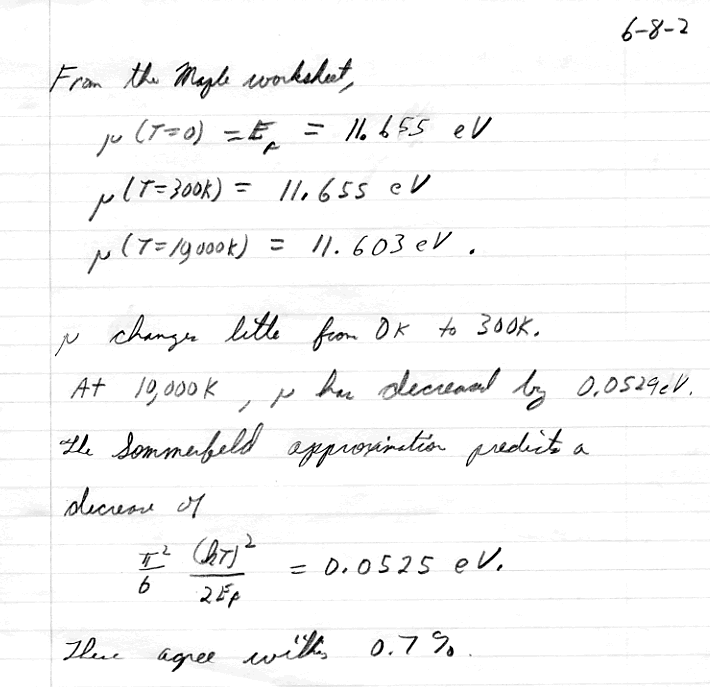 6-8-2
From the Maple worksheet,
μ (T=0) = E_F = 11.655 eV
μ (T=300K) = 11.655 eV
μ (T=10,000K) = 11.603 eV.
μ changes little from 0K to 300K.
At 10,000K, μ has decreased by 0.0529eV.
The Sommerfeld approximation predicts a
decrease of
π²/6 (kT)²/2E_F = 0.0525 eV.
These agree within 0.7%.